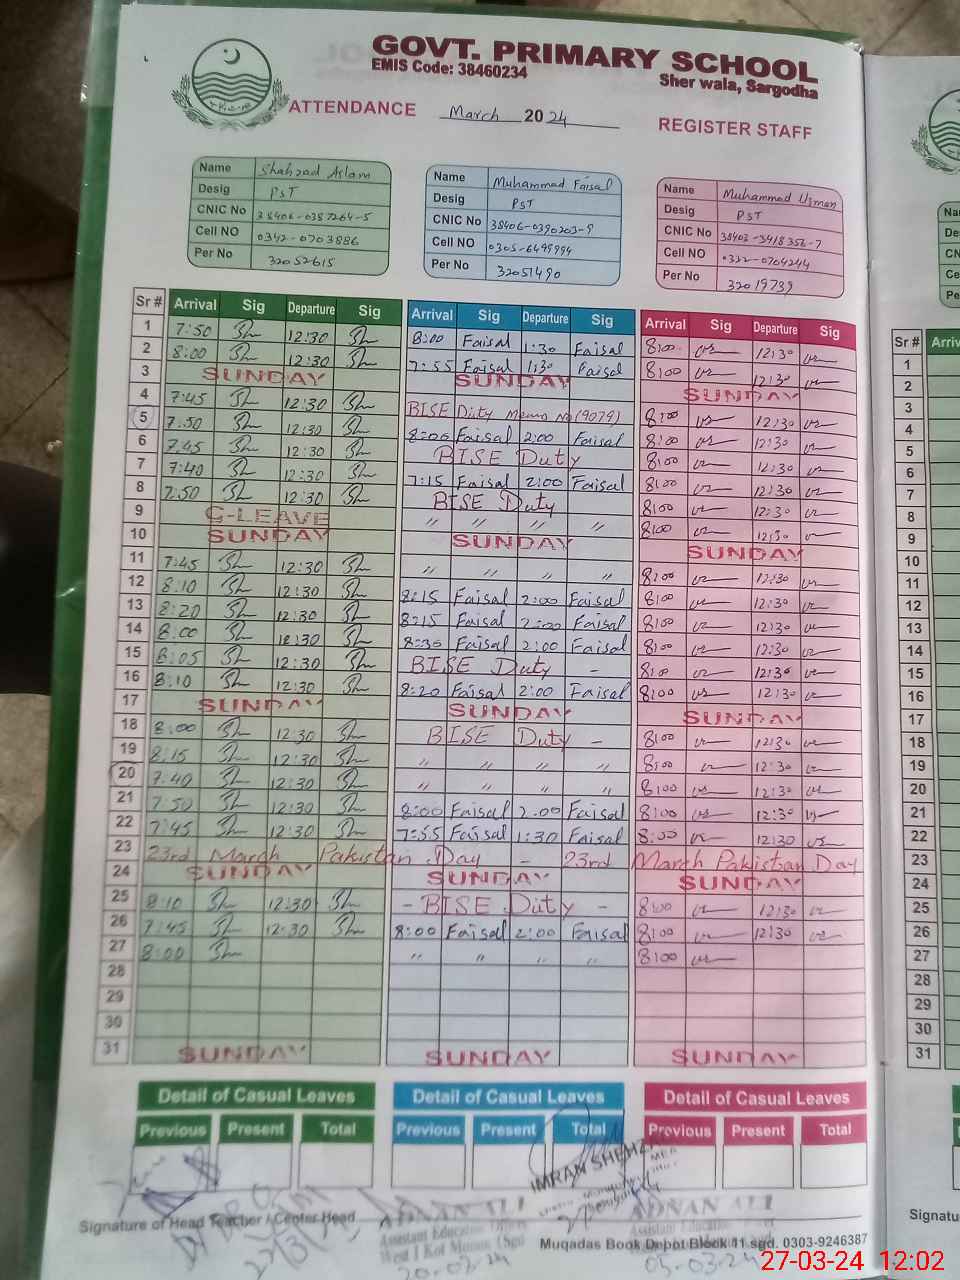 GOVT. PRIMARY SCHOOL
EMIS Code: 38460234
Sher wala, Sargodha
ATTENDANCE March 2024 REGISTER STAFF
Name Shahzad Aslam
Desig PST
CNIC No 38406-0387264-5
Cell NO 0342-0703886
Per No 32052615
Name Muhammad Faisal
Desig PST
CNIC No 38406-0390203-9
Cell NO 0305-6499994
Per No 32051490
Name Muhammad Usman
Desig PST
CNIC No 38403-3418356-7
Cell NO 0322-0704244
Per No 32019739
Sr # Arrival Sig Departure Sig Arrival Sig Departure Sig Arrival Sig Departure Sig
1 7:50 12:30 8:00 Faisal 1:30 Faisal 8:00 12:30
2 8:00 12:30 7:55 Faisal 1:30 Faisal 8:00 12:30
3 SUNDAY SUNDAY SUNDAY
4 7:45 12:30 BISE Duty Memo No (9079) 8:00 12:30
5 7:50 12:30 8:00 Faisal 2:00 Faisal 8:00 12:30
6 7:45 12:30 BISE Duty 8:00 12:30
7 7:40 12:30 7:15 Faisal 2:00 Faisal 8:00 12:30
8 7:50 12:30 BISE Duty 8:00 12:30
9 C-LEAVE " " " " 8:00 12:30
10 SUNDAY SUNDAY SUNDAY
11 7:45 12:30 " " " " 8:00 12:30
12 8:10 12:30 8:15 Faisal 2:00 Faisal 8:00 12:30
13 8:20 12:30 8:15 Faisal 2:00 Faisal 8:00 12:30
14 8:00 12:30 8:30 Faisal 2:00 Faisal 8:00 12:30
15 8:05 12:30 BISE Duty - 8:00 12:30
16 8:10 12:30 8:20 Faisal 2:00 Faisal 8:00 12:30
17 SUNDAY SUNDAY SUNDAY
18 8:00 12:30 BISE Duty - 8:00 12:30
19 8:15 12:30 " " " " 8:00 12:30
20 7:40 12:30 " " " " 8:00 12:30
21 7:50 12:30 8:00 Faisal 2:00 Faisal 8:00 12:30
22 7:45 12:30 7:55 Faisal 1:30 Faisal 8:00 12:30
23 23rd March Pakistan Day - 23rd March Pakistan Day
24 SUNDAY SUNDAY SUNDAY
25 8:10 12:30 - BISE Duty - 8:00 12:30
26 7:45 12:30 8:00 Faisal 2:00 Faisal 8:00 12:30
27 8:00 " " " " 8:00
28
29
30
31 SUNDAY SUNDAY SUNDAY
Detail of Casual Leaves Detail of Casual Leaves Detail of Casual Leaves
Previous Present Total Previous Present Total Previous Present Total
IMRAN SHEHZAD
ADNAN ALI
ADNAN ALI
Signature of Head Teacher / Center Head
Assistant Education
Assistant Education
20-03-24
05-03-24
Muqadas Book Depot Block 11 sgd. 0303-9246387
27-03-24 12:02
Sr # Arriv
1
2
3
4
5
6
7
8
9
10
11
12
13
14
15
16
17
18
19
20
21
22
23
24
25
26
27
28
29
30
31
Signatu